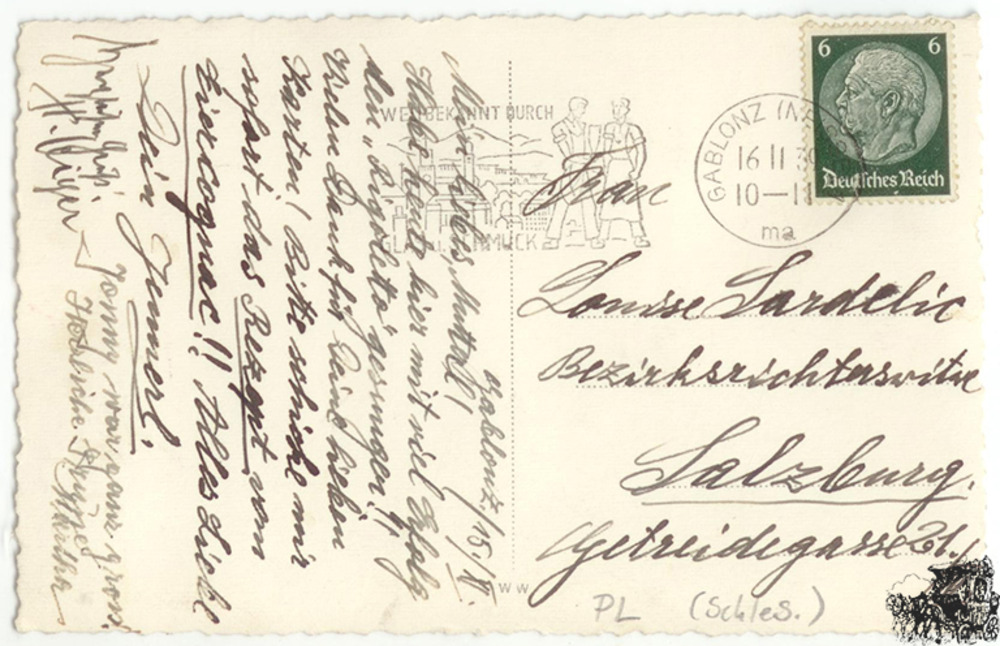 Gablonz. 15./II.
Mein liebes Mutterl!
Habe heute hier mit viel Erfolg
den „Rigoletto" gesungen!!
Vielen Dank für Deine lieben
Karten! Bitte schicke mir
sofort das Rezept vom
Eiercognac!! Alles Liebe
Dein
Jonny war ganz gross!
Herzliche
Martha
WELTBEKANNT DURCH
GLAS u. SCHMUCK
GABLONZ (N
16 II 39
10—11
ma
6 6
Deutsches Reich
Frau
Louise Sardelic
Bezirksrichterswitwe
Salzburg.
Getreidegasse 21./
W W
PL (Schles.)